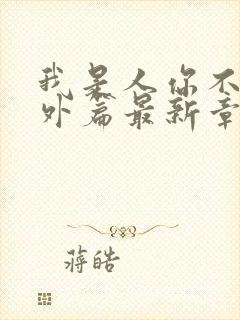 我是人你不
外篇最新章
蒋皓